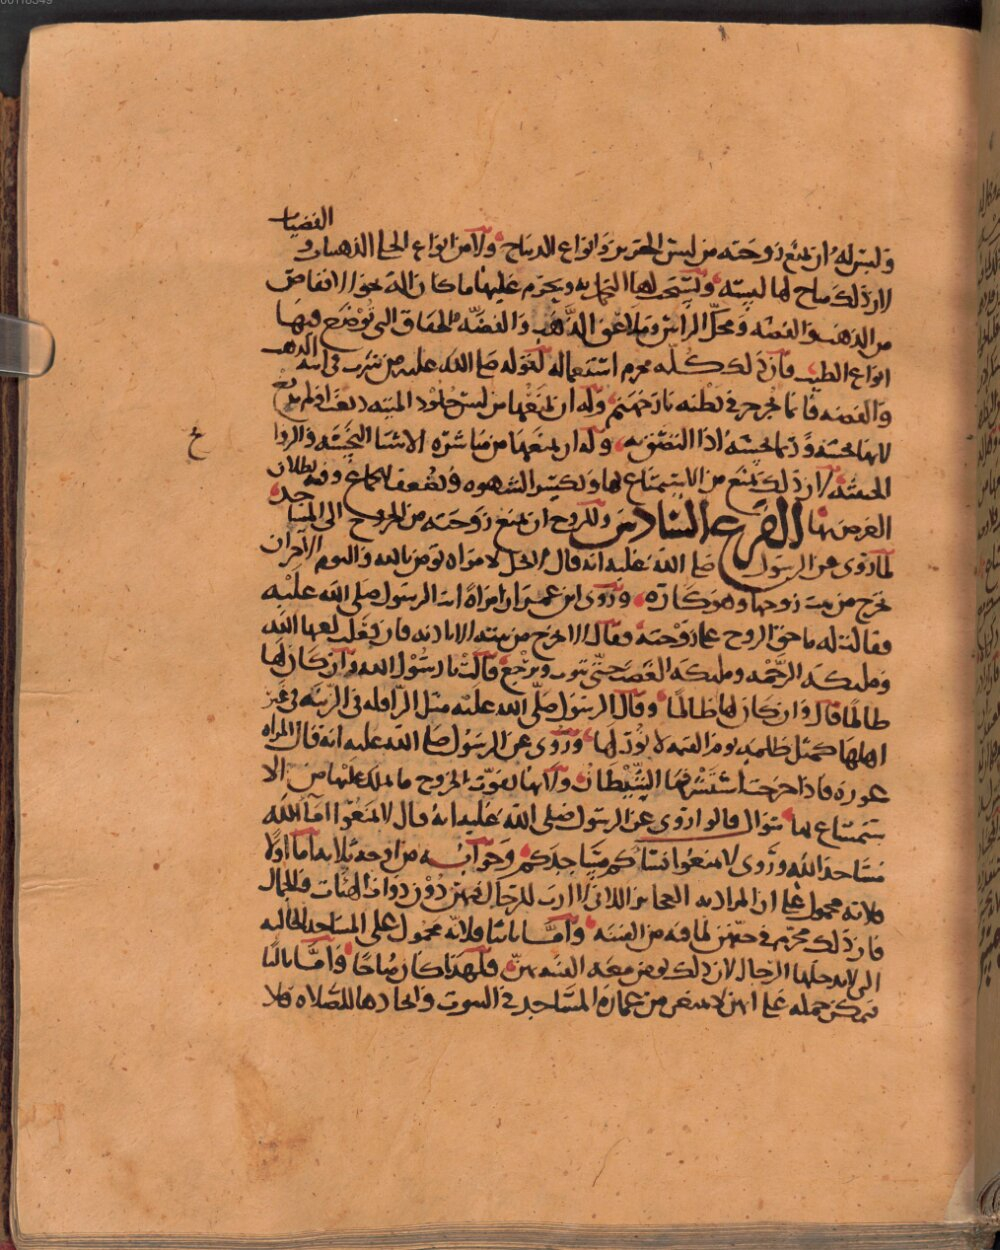 وليس له ان يمنع زوجته من لبس الحرير وانواع الديباج ولا من انواع الحلي الذهبيات و
الفضيات
لان ذلك مباح لها لبسه ويستحب لها التجمل به ويحرم عليها ما كان آلة نحو
من الذهب والفضه ومحل الراس وملاعق الذهب والفضه والحقاق التي توضع فيها
انواع الطيب فان ذلك كله محرم استعماله لقوله صلى الله عليه من شرب في آنية الذهب
والفضه فانما يجرجر في بطنه نار جهنم وله ان يمنعها من لبس جلود الميته
لانها نجسه اذا التصق به وله ان يمنعها من مباشرة الاشيا النجسه
لان ذلك يمنع من الاستمتاع بها ويكسر الشهوه ويضعف الجماع وفيه بطلان
الغرض بها الفرع السادس وللزوج ان يمنع زوجته من الخروج الى المساجد
لما روى عن الرسول صلى الله عليه انه قال لا يحل لامراه تومن بالله واليوم الآخر ان
تخرج من بيت زوجها وهو كاره وروى ابن عمر ان امراة اتت الرسول صلى الله عليه
فقالت له ما حق الزوج على زوجته فقال لا تخرج من بيته الا باذنه فان فعلت لعنها الله
وملىكة الرحمه وملىكة الغضب حتى تتوب وترجع قالت يا رسول الله وان كان لها
ظالما قال وان كان لها ظالما وقال الرسول صلى الله عليه مثل الرافله في الزينه في غير
اهلها كمثل ظلمه يوم القيمه لا نور لها وروى عن الرسول صلى الله عليه انه قال المراه
عوره فاذا خرجت استشرفها الشيطان ولانها تفوت الزوج ما ملك عليها من الا
ستمتاع بها سوال قالوا روى عن الرسول صلى الله عليه انه قال لا تمنعوا امآ الله
مساجد الله وروى لا تمنعوا نساكم مساجدكم وجوابه من اوجه ثلاثه اما اولا
فلانه محمول على ان المراد به العجايز اللاتي لا ارب للرجال فيهن دون ذوات الهيئات والجمال
فان ذلك محرم في حقهن لما فيه من الفتنه وأما ثانيا فلانه محمول على المساجد الخاليه
التي لا يدخلها الرجال لان ذلك يومن معه الفتنه بهن فلهذا كان مباحا وأما ثالثا
فيمكن حمله على انهن لا يمنعن من عمارة المساجد في البيوت واتخاذها للصلاه فلا